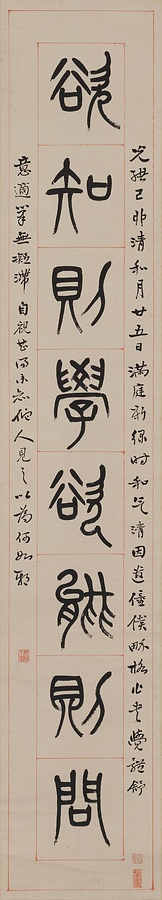 欲知則學欲能則問
光緒己卯清和月廿五日滿庭新綠時和气清因遣僮僕覺體舒
意適筆無凝滯自視甚得未他人見之以為何如邪